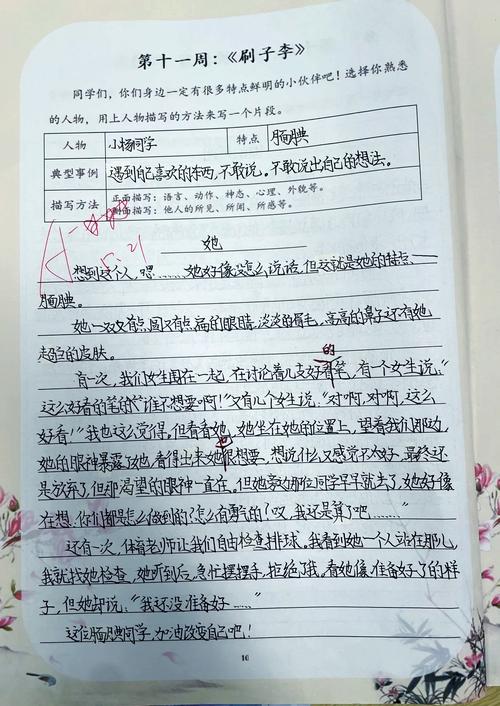 第十一周：《刷子李》
同学们，你们身边一定有很多特点鲜明的小伙伴吧！选择你熟悉
的人物，用上人物描写的方法来写一个片段。
人物 小杨同学 特点 腼腆
典型事例 遇到自己喜欢的东西，不敢说。不敢说出自己的想法。
描写方法 正面描写：语言、动作、神态、心理、外貌等。
侧面描写：他人的所见、所闻、所感等。
5.21
她
想到这个人，嗯……她好像没怎么说话，但这就是她的特点——
腼腆。
她一双又有点圆又有点扁的眼睛，淡淡的眉毛，高高的鼻子还有她
的皮肤。
的
有一次，我们女生围在一起，在讨论着几支好看笔，有个女生说：“
这么好看的笔谁不想要啊！”又有几个女生说：“对啊，对啊，这么
好看！”我也这么觉得，但看看她，她坐在她的位置上，望着我们那边，
也
她的眼神暴露了她，看得出来她很想要，想说什么，又感觉不太好，最终还
是放弃了，但那渴望的眼神一直在。但她旁边那位同学早早就去了，她好像
在想，你们都是怎么做到的？怎么有勇气的？哎，我还是算了吧……
还有一次，体育老师让我们自由检查排球。我看到她一个人站在那儿，
我就找她检查，她听到后，急忙摆摆手，拒绝了我，看她像准备好了的样
子，但她却说：“我还没准备好……”
这位腼腆同学，加油改变自己吧！
16